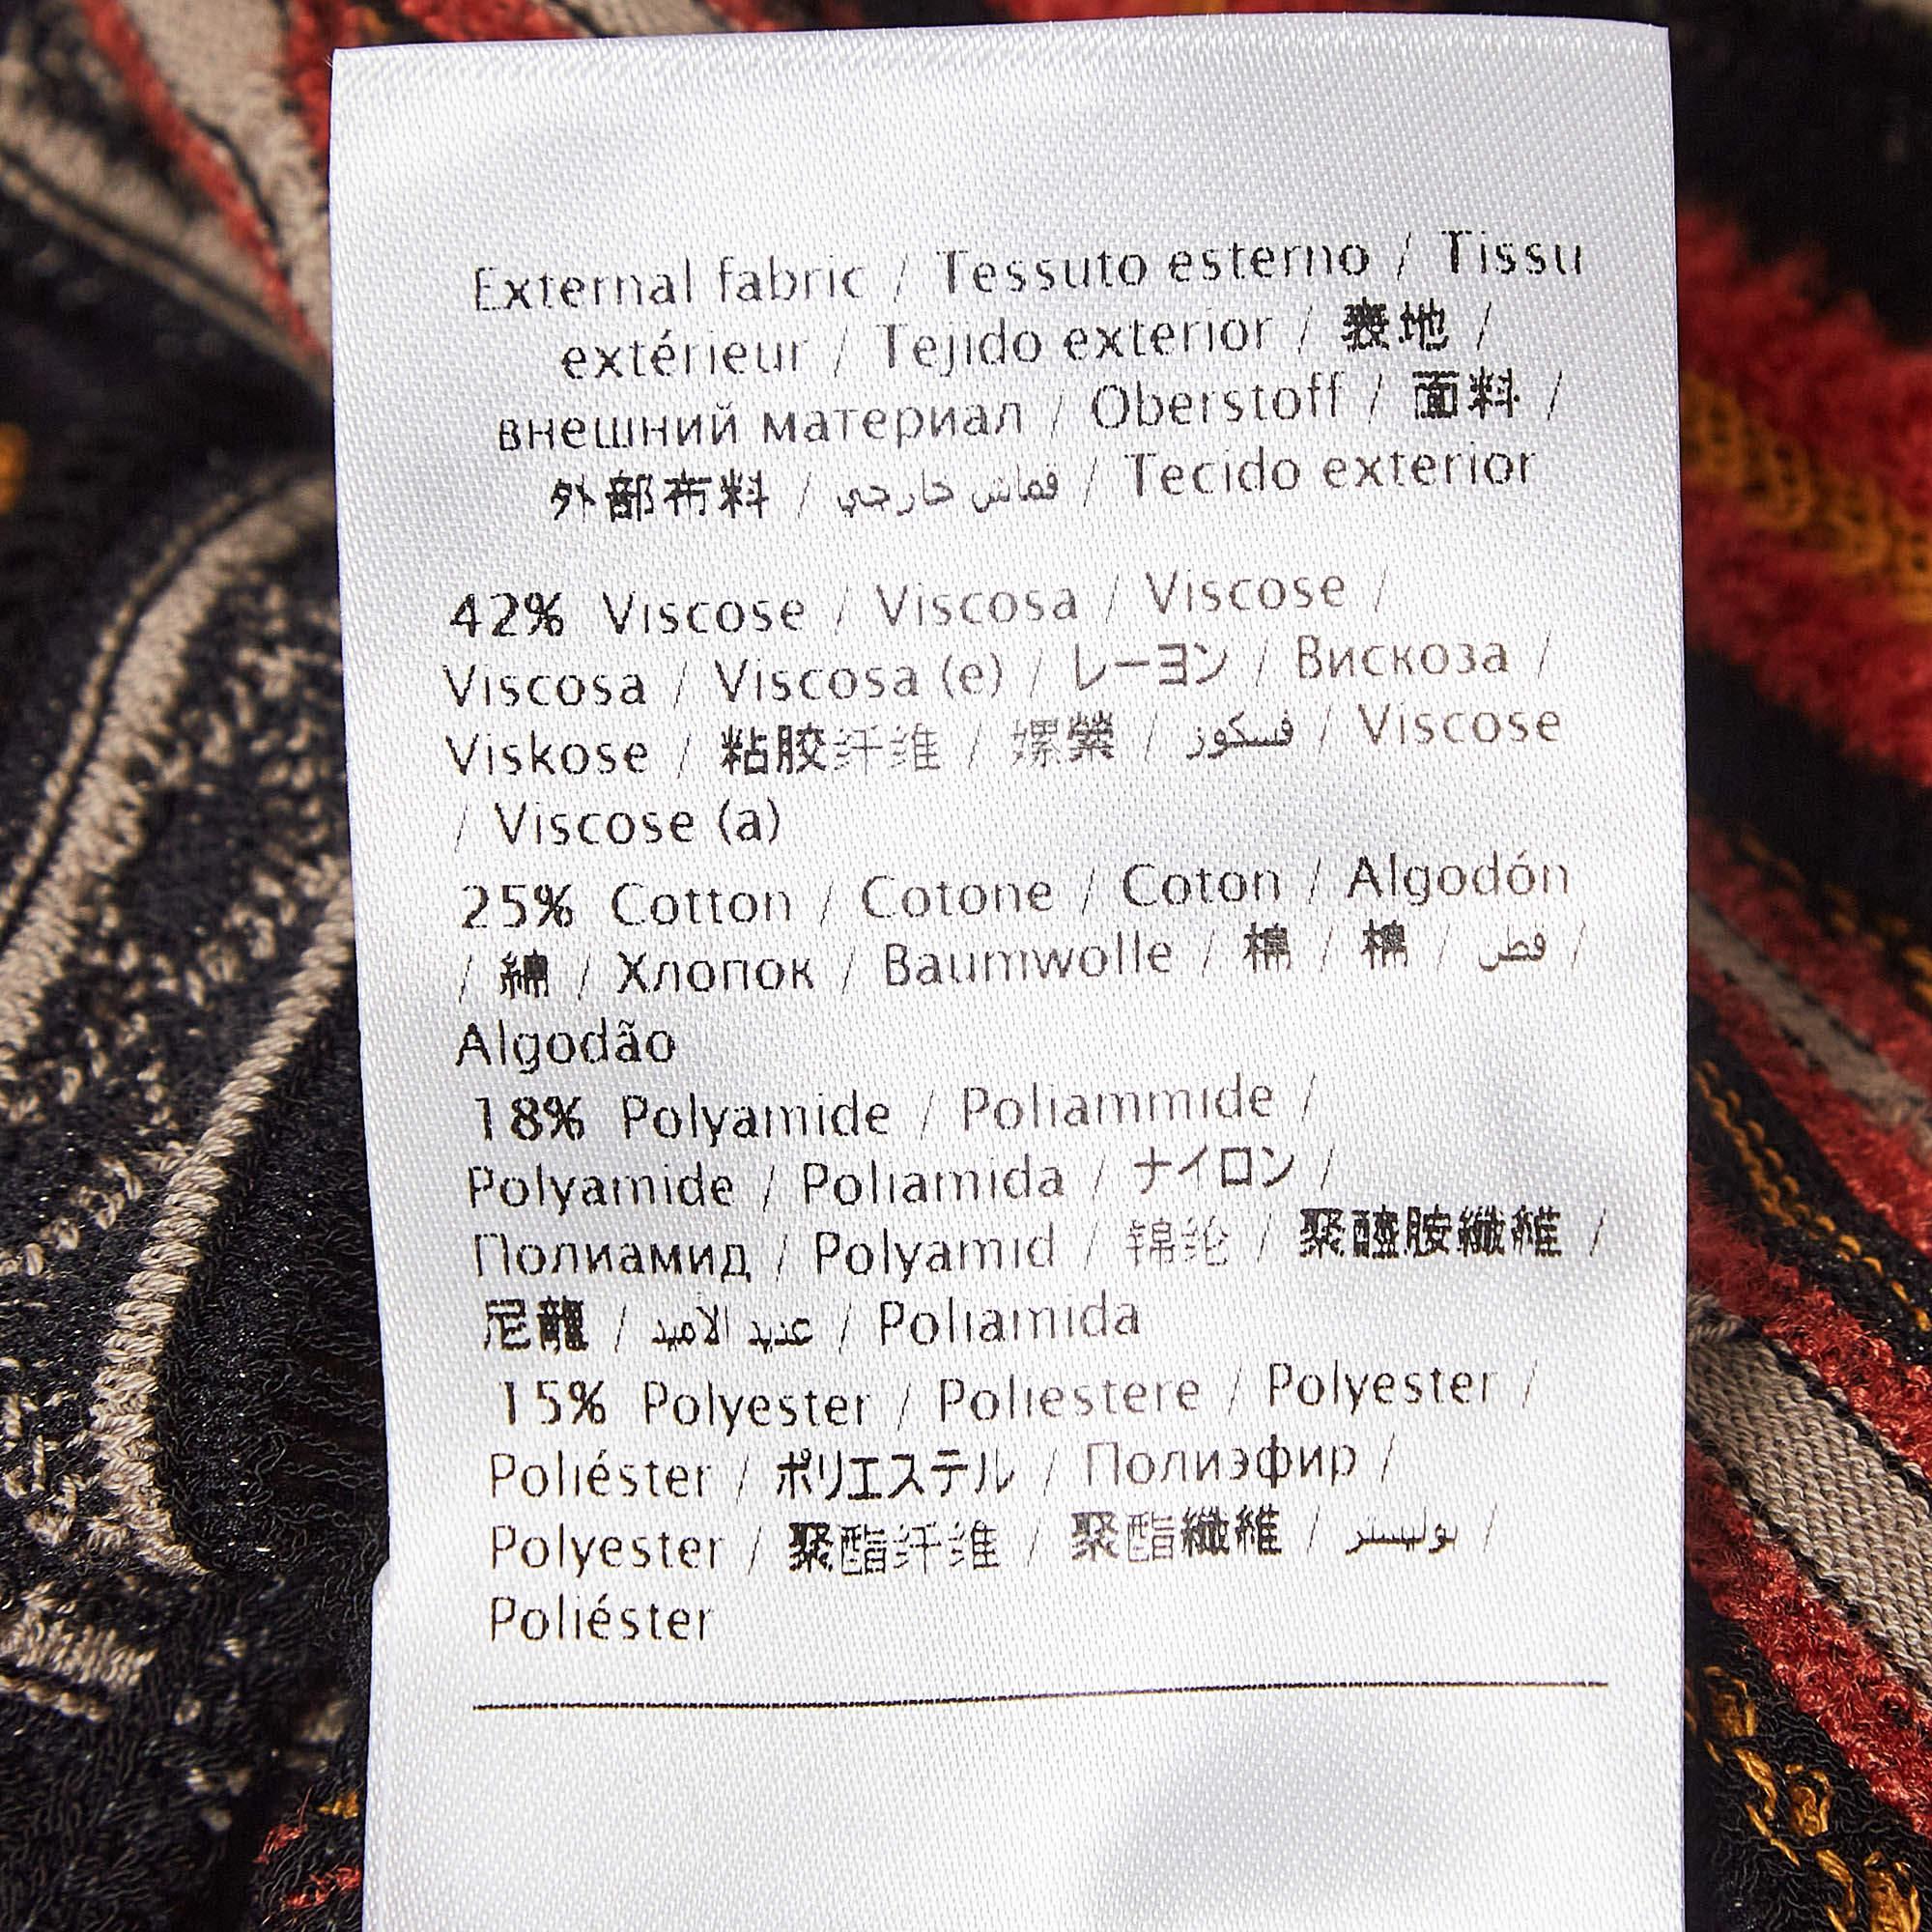 External fabric / Tessuto esterno / Tissu
extérieur / Tejido exterior / 表地 /
внешний материал / Oberstoff / 面料 /
外部布料 / قماش خارجي / Tecido exterior
42% Viscose / Viscosa / Viscose /
Viscosa / Viscosa (e) / レーヨン / Вискоза /
Viskose / 粘胶纤维 / 嫘縈 / فسكوز / Viscose
/ Viscose (a)
25% Cotton / Cotone / Coton / Algodón
/ 綿 / Хлопок / Baumwolle / 棉 / 棉 / قطن /
Algodão
18% Polyamide / Poliammide /
Polyamide / Poliamida / ナイロン /
Полиамид / Polyamid / 锦纶 / 聚醯胺纖維 /
尼龍 / عديد الاميد / Poliamida
15% Polyester / Poliestere / Polyester /
Poliéster / ポリエステル / Полиэфир /
Polyester / 聚酯纤维 / 聚酯纖維 / بوليستر /
Poliéster